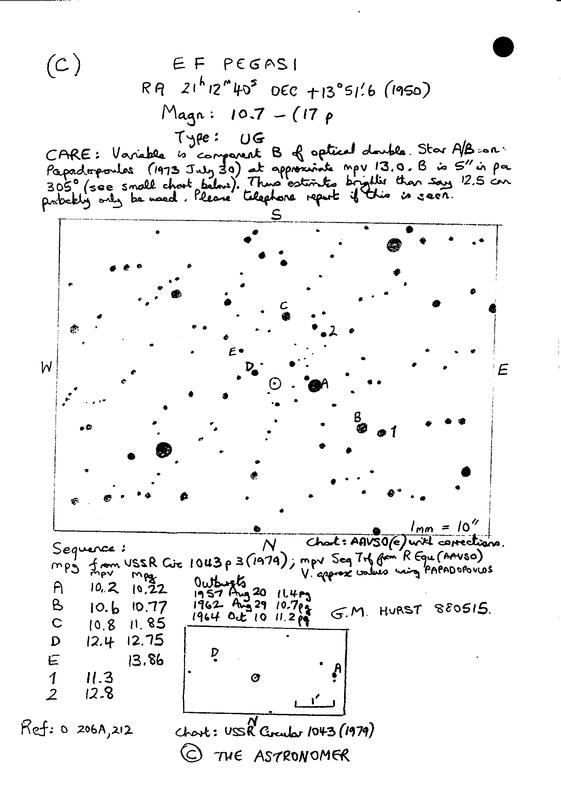 (C)
EF PEGASI
RA 21h 12m 40s DEC +13°51'.6 (1950)
Magn: 10.7 - (17 p
Type: UG
CARE: Variable is component B of optical double. Star A/B
Papadopoulos (1973 July 30) at approximate mpv 13.0. B is 5" in pa
305° (see small chart below). Thus estimates brighter than say 12.5 can
probably only be used. Please telephone report if this is seen.
S
C
2
E
D
W
E
A
B
1
1mm = 10"
N
Chart: AAVSO(e) with corrections.
Sequence:
mpg from USSR Circ 1043 p 3 (1979); mpv Seq Trf from R Equ (AAVSO)
V. approx values using PAPADOPOULOS
mpv mpg
A 10.2 10.22
B 10.6 10.77
C 10.8 11.85
D 12.4 12.75
E 13.86
1 11.3
2 12.8
Outbursts
1957 Aug 20 11.4pg
1962 Aug 29 10.7pg
1964 Oct 10 11.2pg
G.M. HURST 880515.
D
A
1'
N
Ref: O 206A,212
Chart: USSR Circular 1043 (1979)
© THE ASTRONOMER